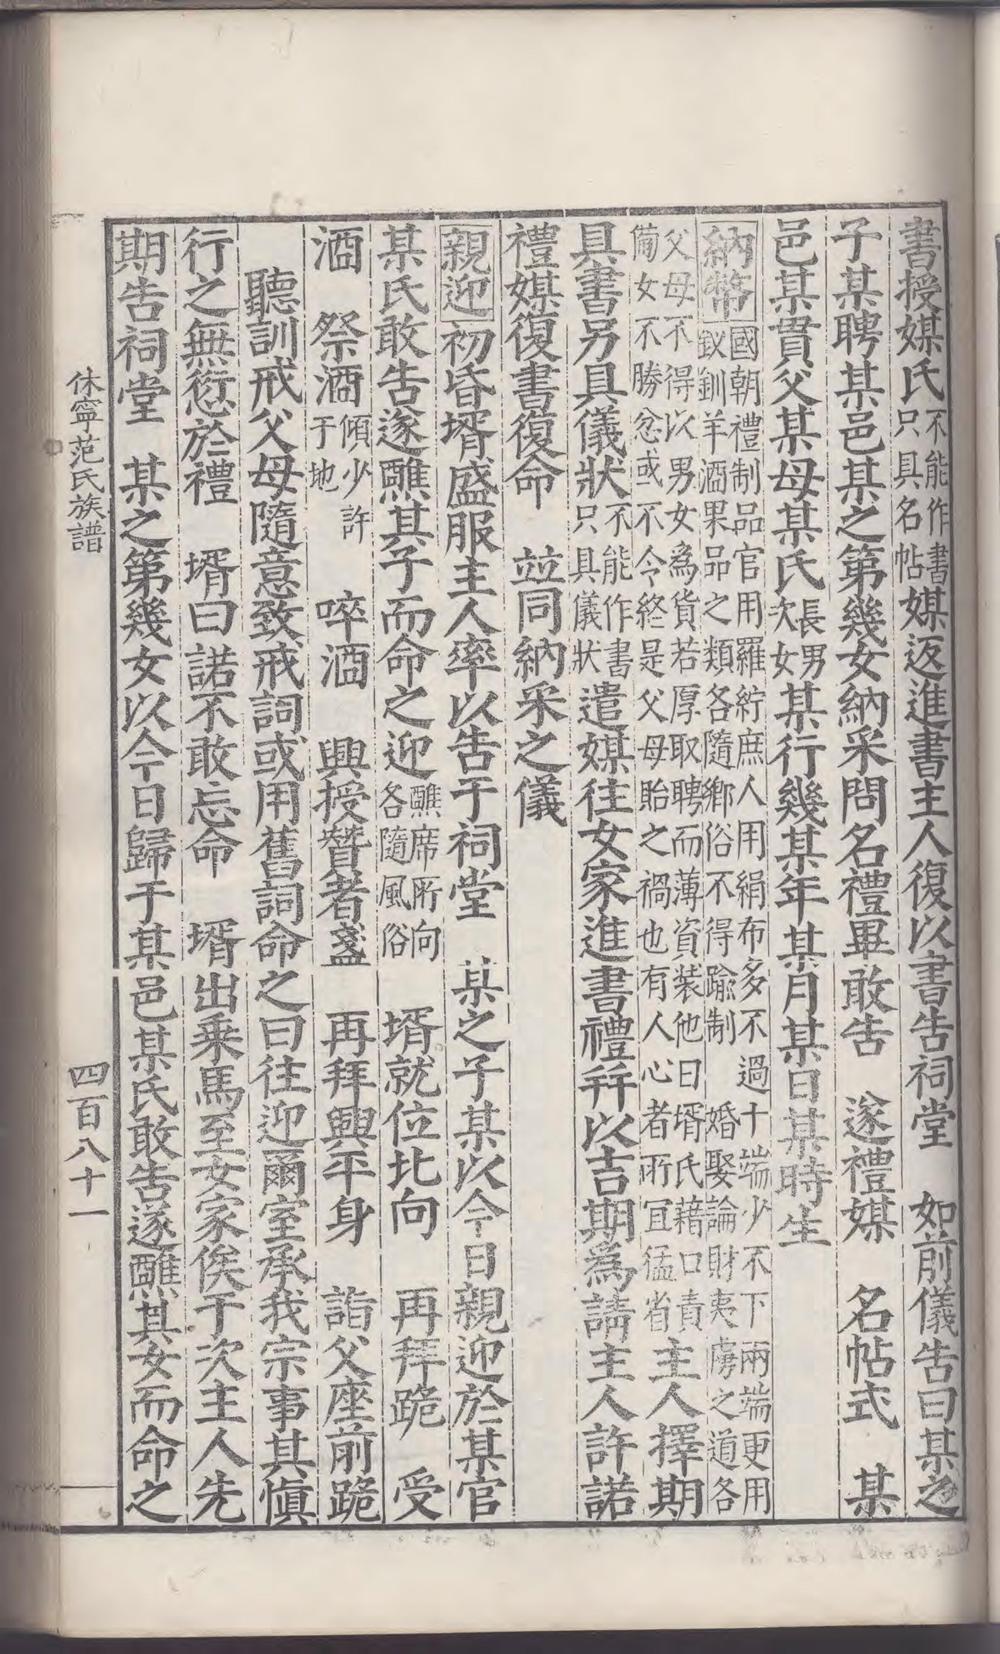 書授媒氏不能作書只具名帖媒返進書主人復以書告祠堂　如前儀告曰某之
子某聘某邑某之第幾女納采問名禮畢敢告　遂禮媒　名帖式　某
邑某貫父某母某氏長男次女某行幾某年某月某日某時生
納幣國朝禮制品官用羅紵庶人用絹布多不過十端少不下兩端更用釵釧羊酒果品之類各隨鄉俗不得踰制　婚娶論財夷虜之道各
父母不得以男女為貨若厚取聘而薄資裝他日壻氏藉口責備女不勝忿或不令終是父母貽之禍也有人心者所宜猛省主人擇期
具書另具儀狀不能作書只具儀狀遣媒往女家進書禮幷以吉期為請主人許諾
禮媒復書復命　竝同納采之儀
親迎初昏壻盛服主人率以告于祠堂　某之子某以今日親迎於某官
某氏敢告遂醮其子而命之迎醮席所向各隨風俗　壻就位北向　再拜跪　受
酒　祭酒傾少許于地　啐酒　興授贊者盞　再拜興平身　詣父座前跪
聽訓戒父母隨意致戒詞或用舊詞命之曰往迎爾室承我宗事其愼
行之無愆於禮　壻曰諾不敢忘命　壻出乘馬至女家俟于次主人先
期告祠堂　某之第幾女以今日歸于某邑某氏敢告遂醮其女而命之
休寧范氏族譜
四百八十一